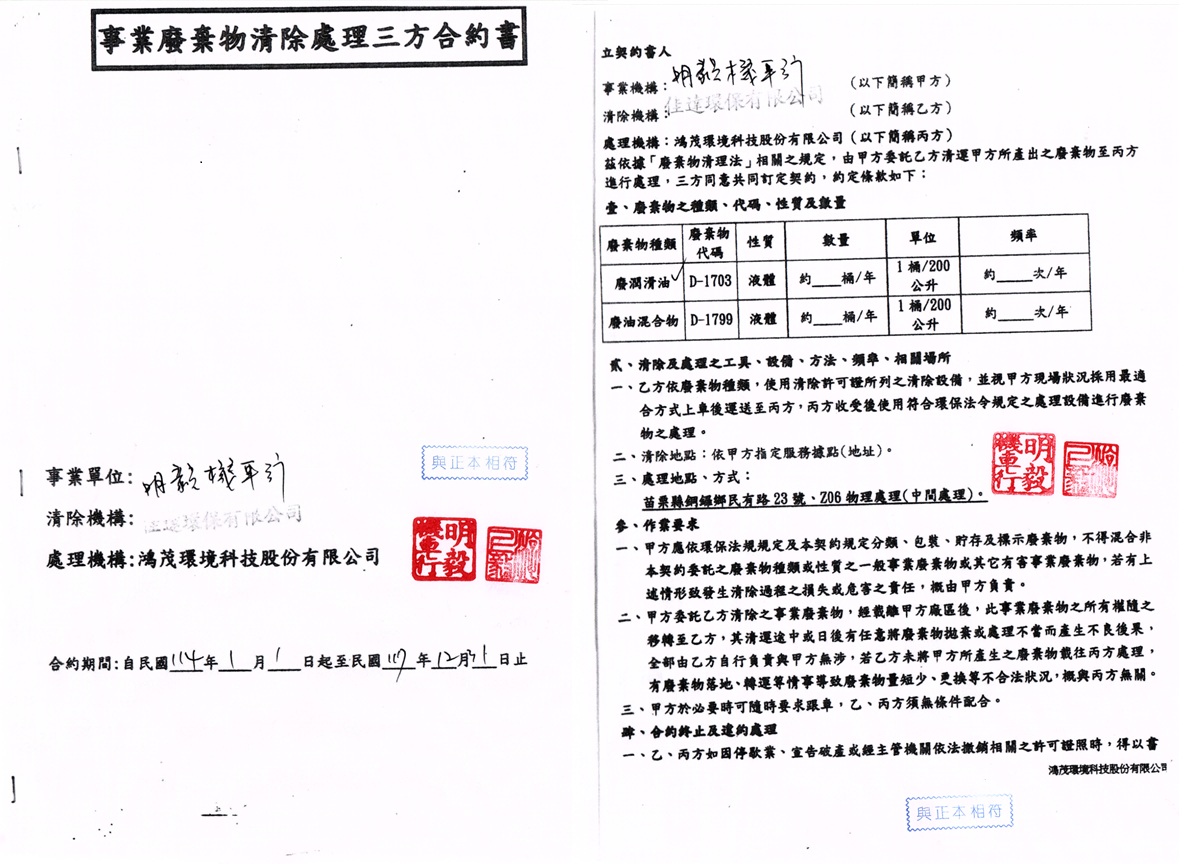 事業廢棄物清除處理三方合約書
與正本相符
事業單位：明毅機車行
清除機構：佳達環保有限公司
處理機構：鴻茂環境科技股份有限公司
明毅機車行
合約期間：自民國114年1月1日起至民國117年12月31日止
立契約書人
事業機構：明毅機車行（以下簡稱甲方）
清除機構：佳達環保有限公司（以下簡稱乙方）
處理機構：鴻茂環境科技股份有限公司（以下簡稱丙方）
茲依據「廢棄物清理法」相關之規定，由甲方委託乙方清運甲方所產出之廢棄物至丙方
進行處理，三方同意共同訂定契約，約定條款如下：
壹、廢棄物之種類、代碼、性質及數量
廢棄物種類 廢棄物代碼 性質 數量 單位 頻率
廢潤滑油✓ D-1703 液體 約____桶/年 1桶/200公升 約____次/年
廢油混合物 D-1799 液體 約____桶/年 1桶/200公升 約____次/年
貳、清除及處理之工具、設備、方法、頻率、相關場所
一、乙方依廢棄物種類，使用清除許可證所列之清除設備，並視甲方現場狀況採用最適
合方式上車後運送至丙方，丙方收受後使用符合環保法令規定之處理設備進行廢棄
物之處理。
二、清除地點：依甲方指定服務據點(地址)。
三、處理地點、方式：
苗栗縣銅鑼鄉民有路23號、Z06物理處理(中間處理)。
明毅機車行
參、作業要求
一、甲方應依環保法規規定及本契約規定分類、包裝、貯存及標示廢棄物，不得混合非
本契約委託之廢棄物種類或性質之一般事業廢棄物或其它有害事業廢棄物，若有上
述情形致發生清除過程之損失或危害之責任，概由甲方負責。
二、甲方委託乙方清除之事業廢棄物，經載離甲方廠區後，此事業廢棄物之所有權隨之
移轉至乙方，其清運途中或日後有任意將廢棄物拋棄或處理不當而產生不良後果，
全部由乙方自行負責與甲方無涉，若乙方未將甲方所產生之廢棄物載往丙方處理，
有廢棄物落地、轉運等情事導致廢棄物量短少、更換等不合法狀況，概與丙方無關。
三、甲方於必要時可隨時要求跟車，乙、丙方須無條件配合。
肆、合約終止及違約處理
一、乙、丙方如因停歇業、宣告破產或經主管機關依法撤銷相關之許可證照時，得以書
鴻茂環境科技股份有限公司
與正本相符